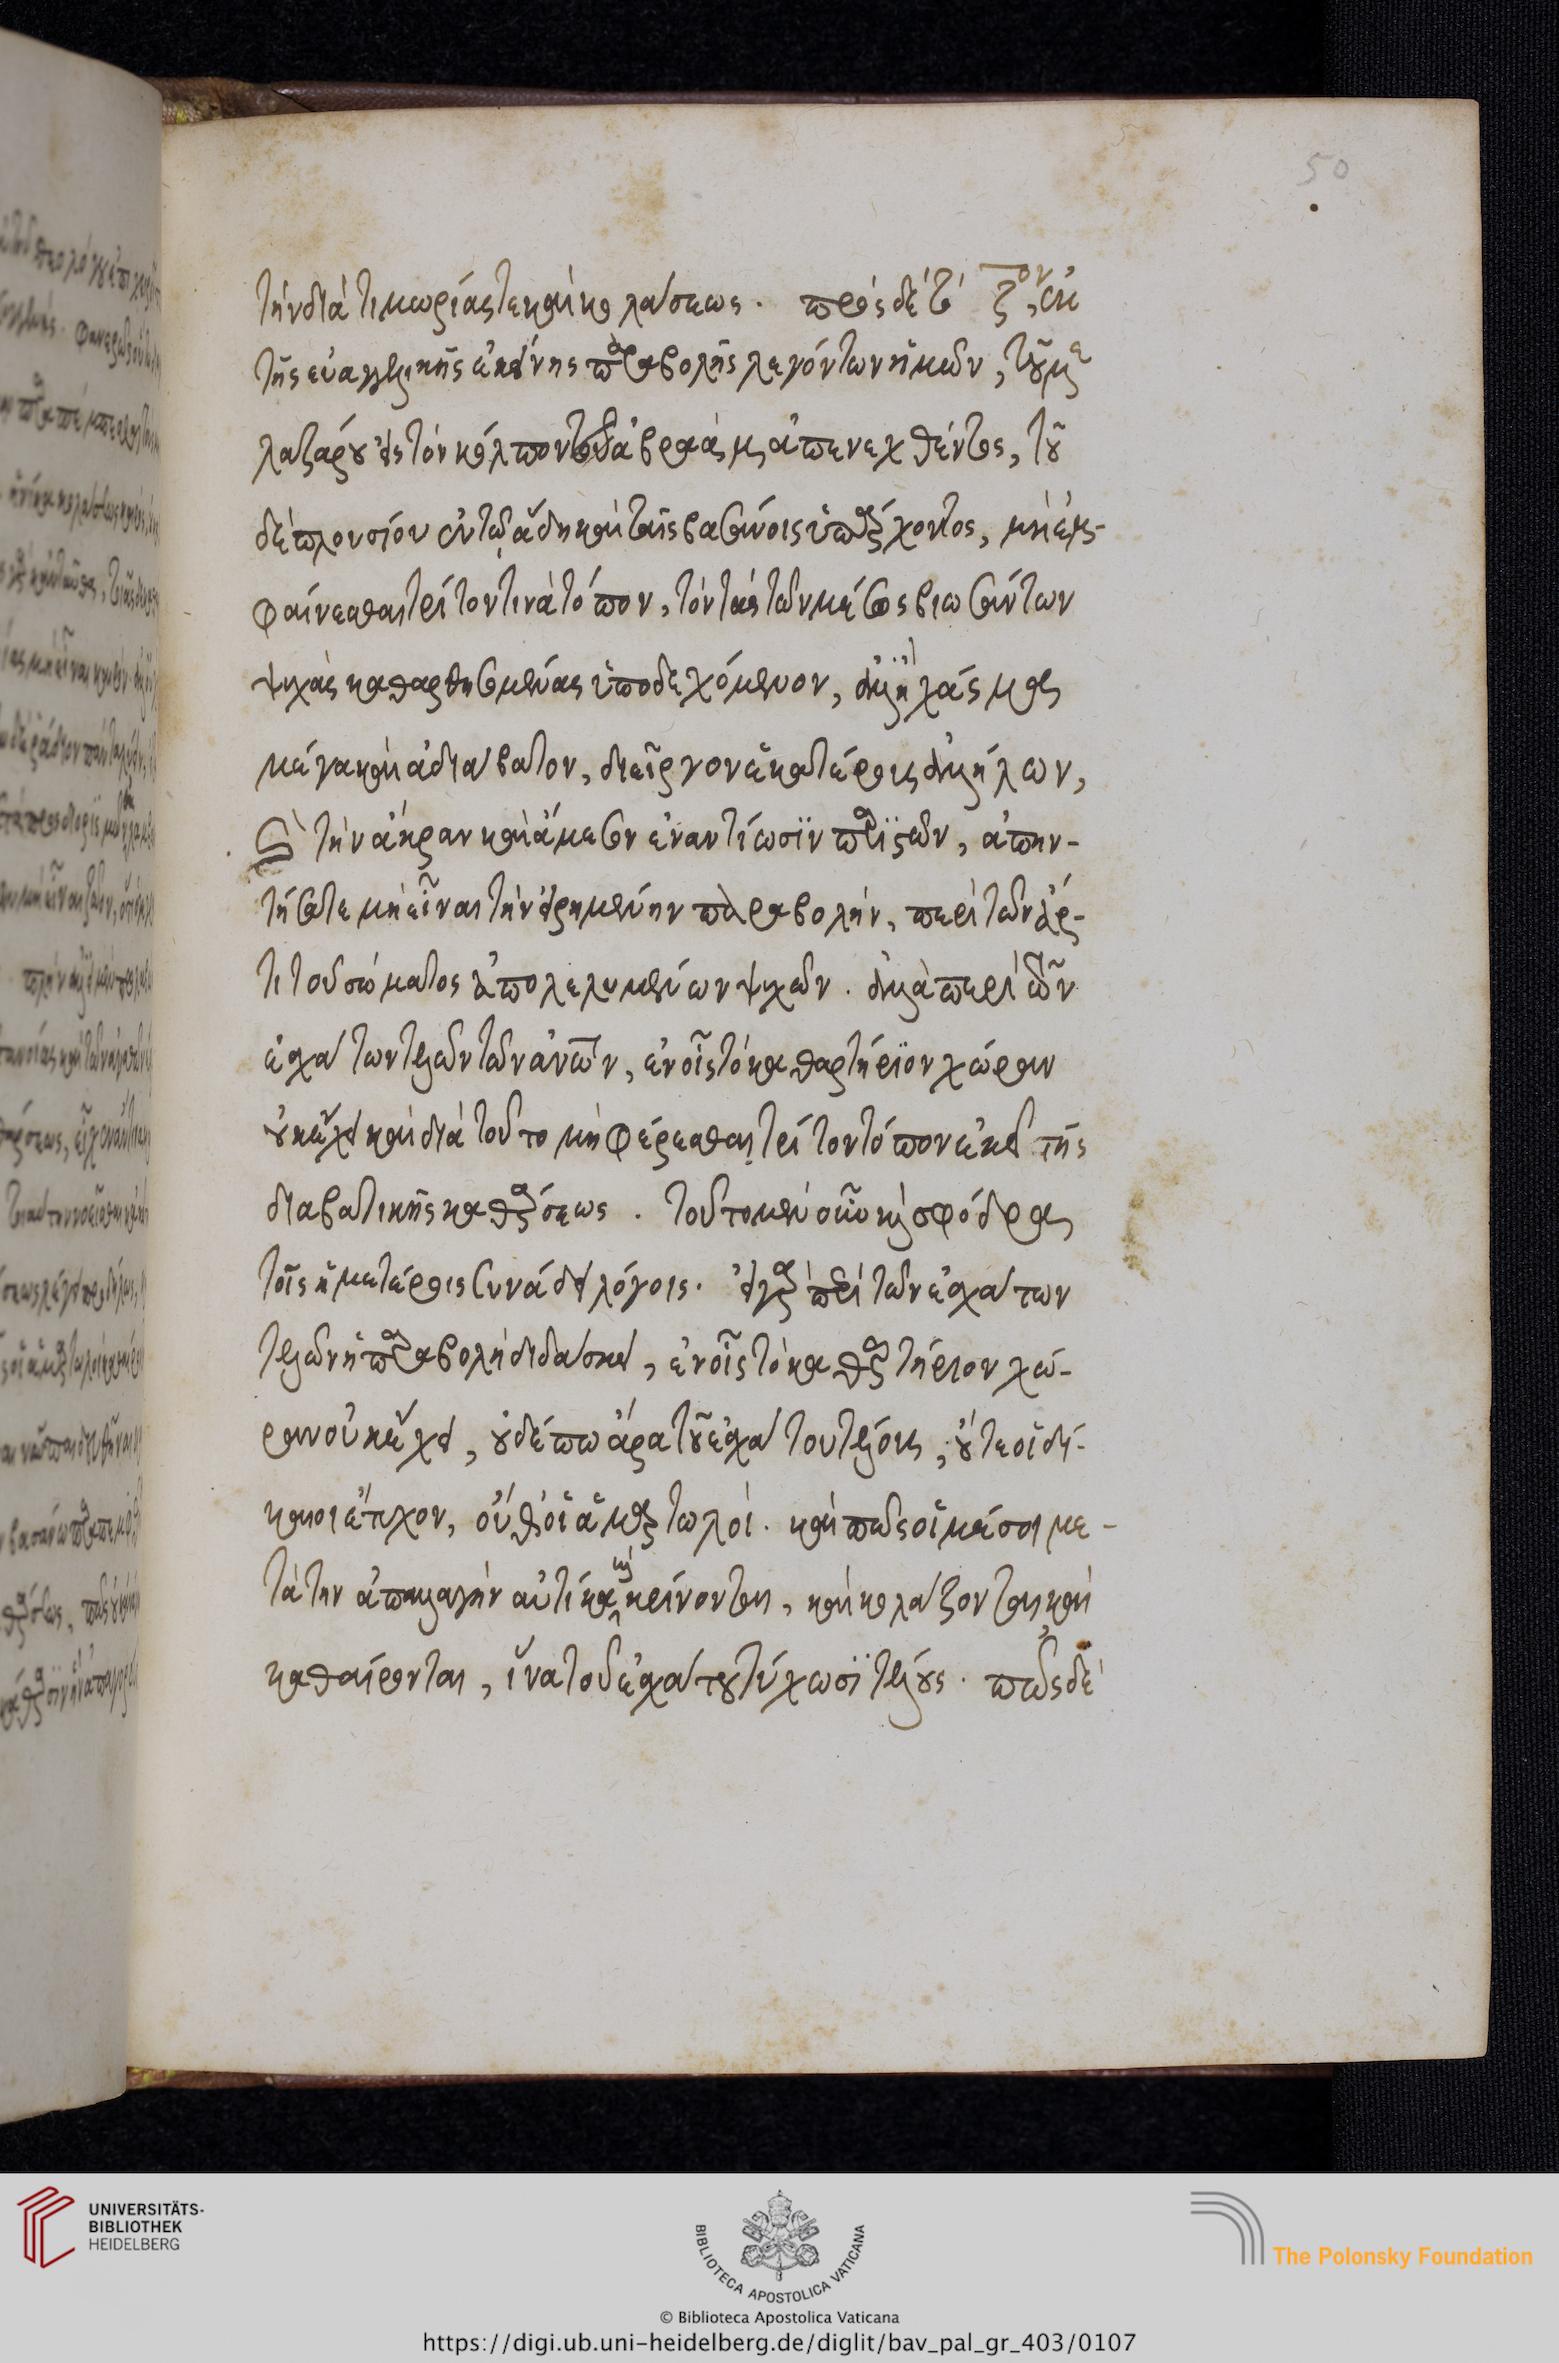 50
τὴν διὰ τιμωρίας τε καὶ κολάσεως. πρὸς δὲ τὸ ζον, ἐκ
τῆς εὐαγγελικῆς ἐκείνης παραβολῆς λεγόντων ἡμῶν, τοῦ μὲν
λαζάρου εἰς τὸν κόλπον τοῦ ἀβραὰμ ἀπενεχθέντος, τοῦ
δὲ πλουσίου ἐν τῷ ἅδῃ καὶ ταῖς βασάνοις ὑπάρχοντος, μὴ ἐμ-
φαίνεσθαι τρίτον τινὰ τόπον, τὸν τὰς τῶν μέσως βιωσάντων
ψυχὰς καθαρθησομένας ὑποδεχόμενον, ἀλλ' ἢ χάσμα
μέγα καὶ ἀδιάβατον, διεῖργον ἑκατέρους ἀλλήλων,
καὶ τὴν ἄκραν καὶ ἄμεσον ἐναντίωσϊν παρϊστῶν, ἀπην-
τήσατε μὴ εἶναι τὴν εἰρημένην παραβολὴν, περὶ τῶν ἄρ-
τι τοῦ σώματος ἀπολελυμένων ψυχῶν. ἀλλὰ περὶ τῶν
ἐσχάτων τελῶν τῶν ἀνων, ἐν οἷς τὸ καθαρτήρϊον χώραν
οὐκ ἔχει καὶ διὰ τοῦτο μὴ φέρεσθαι τρίτον τόπον ἐκεῖ τῆς
διαβατικῆς καθάρσεως. τοῦτο μὲν οὖν καὶ σφόδρα
τοῖς ἡμετέροις συνάδει λόγοις. εἰ γὰρ περὶ τῶν ἐσχάτων
τελῶν ἡ παραβολὴ διδάσκει, ἐν οἷς τὸ καθαρτήριον χώ-
ραν οὐκ ἔχει, οὐδέπω ἄρα τοῦ ἐσχάτου τέλους, οὔτε οἱ δί-
καιοι ἔτυχον, οὔθ' οἱ ἁμαρτωλοί. καὶ πῶς οἱ μέσοι με-
τὰ τὴν ἀπαλλαγὴν αὐτίκα καὶ κρίνονται, καὶ κολάζονται καὶ
καθαίρονται, ἵνα τοῦ ἐσχάτου τύχωσϊ τέλους. πῶς δὲ
UNIVERSITÄTS-
BIBLIOTHEK
HEIDELBERG
BIBLIOTECA APOSTOLICA VATICANA
The Polonsky Foundation
© Biblioteca Apostolica Vaticana
https://digi.ub.uni-heidelberg.de/diglit/bav_pal_gr_403/0107